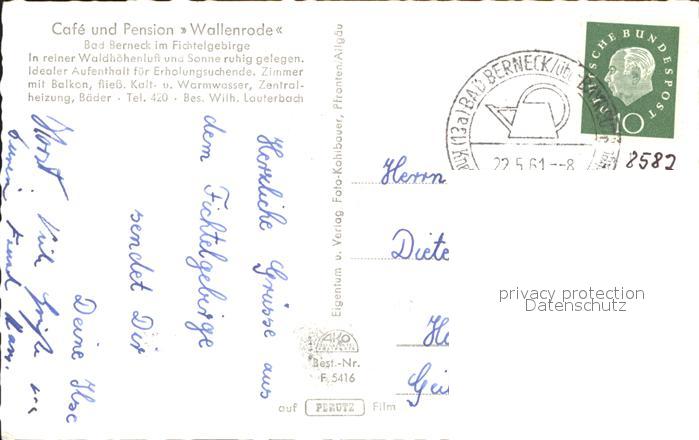 Café und Pension »Wallenrode«
Bad Berneck im Fichtelgebirge
In reiner Waldhöhenluft und Sonne ruhig gelegen.
Idealer Aufenthalt für Erholungsuchende. Zimmer
mit Balkon, fließ. Kalt- u. Warmwasser, Zentral-
heizung, Bäder · Tel. 420 · Bes. Wilh. Lauterbach
Herzliche Grüsse aus
dem Fichtelgebirge
sendet Dir
Deine Ilse
Horst
Eigentum u. Verlag Foto-Kohlbauer, Pfronten/Allgäu
AKO
Best.-Nr.
F. 5416
auf PERUTZ Film
(13a) BAD BERNECK
22.5.61--8
DEUTSCHE BUNDESPOST
10
8582
Herrn
Diete
He
Gei
privacy protection
Datenschutz